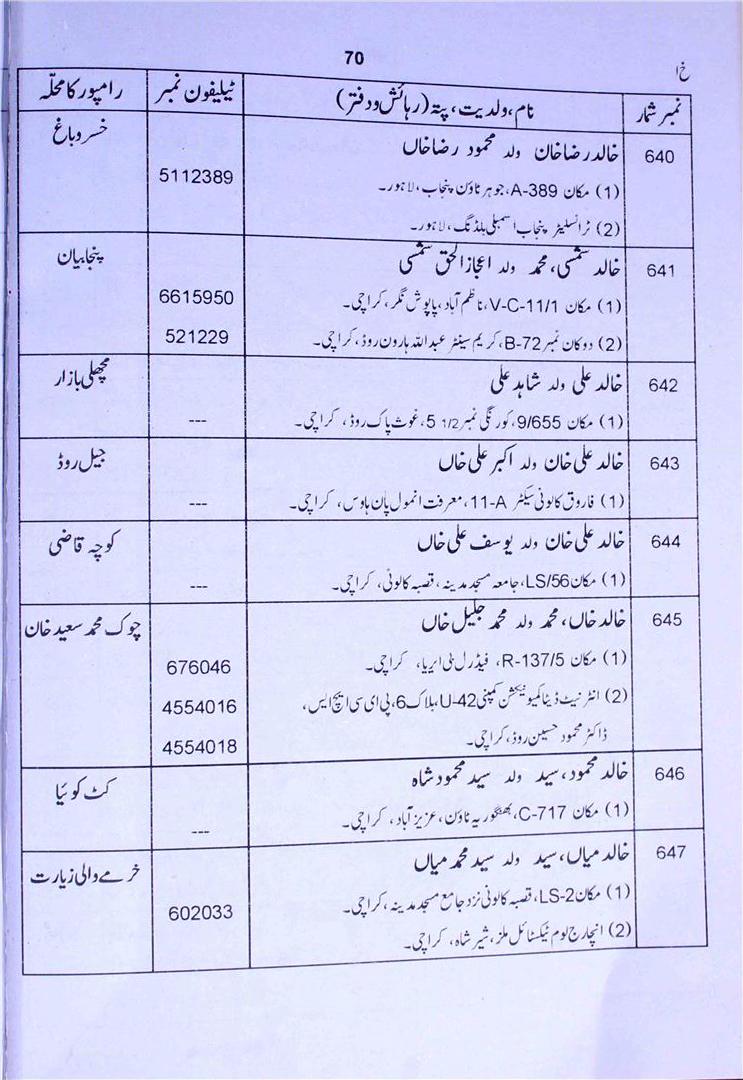 70
خ ا
نمبر شمار	نام، ولدیت، پتہ (رہائش و دفتر)	ٹیلیفون نمبر	رامپور کا محلّہ
640	خالد رضا خان ولد محمود رضا خاں	خسرو باغ
(1) مکان A-389، جوہر ٹاؤن پنجاب، لاہور۔	5112389
(2) ٹرانسلیٹر پنجاب اسمبلی بلڈنگ، لاہور۔
641	خالد شمسی، محمد ولد اعجاز الحق شمسی	پنجابیان
(1) مکان V-C-11/1، ناظم آباد، پاپوش نگر، کراچی۔	6615950
(2) دوکان نمبر B-72، کریم سینٹر عبداللہ ہارون روڈ، کراچی۔	521229
642	خالد علی ولد شاہد علی	مچھلی بازار
(1) مکان 9/655، کورنگی نمبر 5 1/2، غوث پاک روڈ، کراچی۔	---
643	خالد علی خان ولد اکبر علی خاں	جیل روڈ
(1) فاروق کالونی سیکٹر 11-A، معرفت انمول پان ہاوس، کراچی۔	---
644	خالد علی خان ولد یوسف علی خاں	کوچہ قاضی
(1) مکان LS/56، جامعہ مسجد مدینہ، قصبہ کالونی، کراچی۔	---
645	خالد خاں، محمد ولد محمد جلیل خاں	چوک محمد سعید خان
(1) مکان R-137/5، فیڈرل بی ایریا، کراچی۔	676046
(2) انٹرنیٹ ڈیٹا کمیونیکشن کمپنی U-42، بلاک 6، پی ای سی ایچ ایس،	4554016
ڈاکٹر محمود حسین روڈ، کراچی۔	4554018
646	خالد محمود، سید ولد سید محمود شاہ	کٹ کوئیا
(1) مکان C-717، بھنگوریہ ٹاؤن، عزیز آباد، کراچی۔	---
647	خالد میاں، سید ولد سید محمد میاں	خرمے والی زیارت
(1) مکان LS-2، قصبہ کالونی نزد جامع مسجد مدینہ، کراچی۔	602033
(2) انچارج لوم ٹیکسٹائل ملز، شیر شاہ، کراچی۔